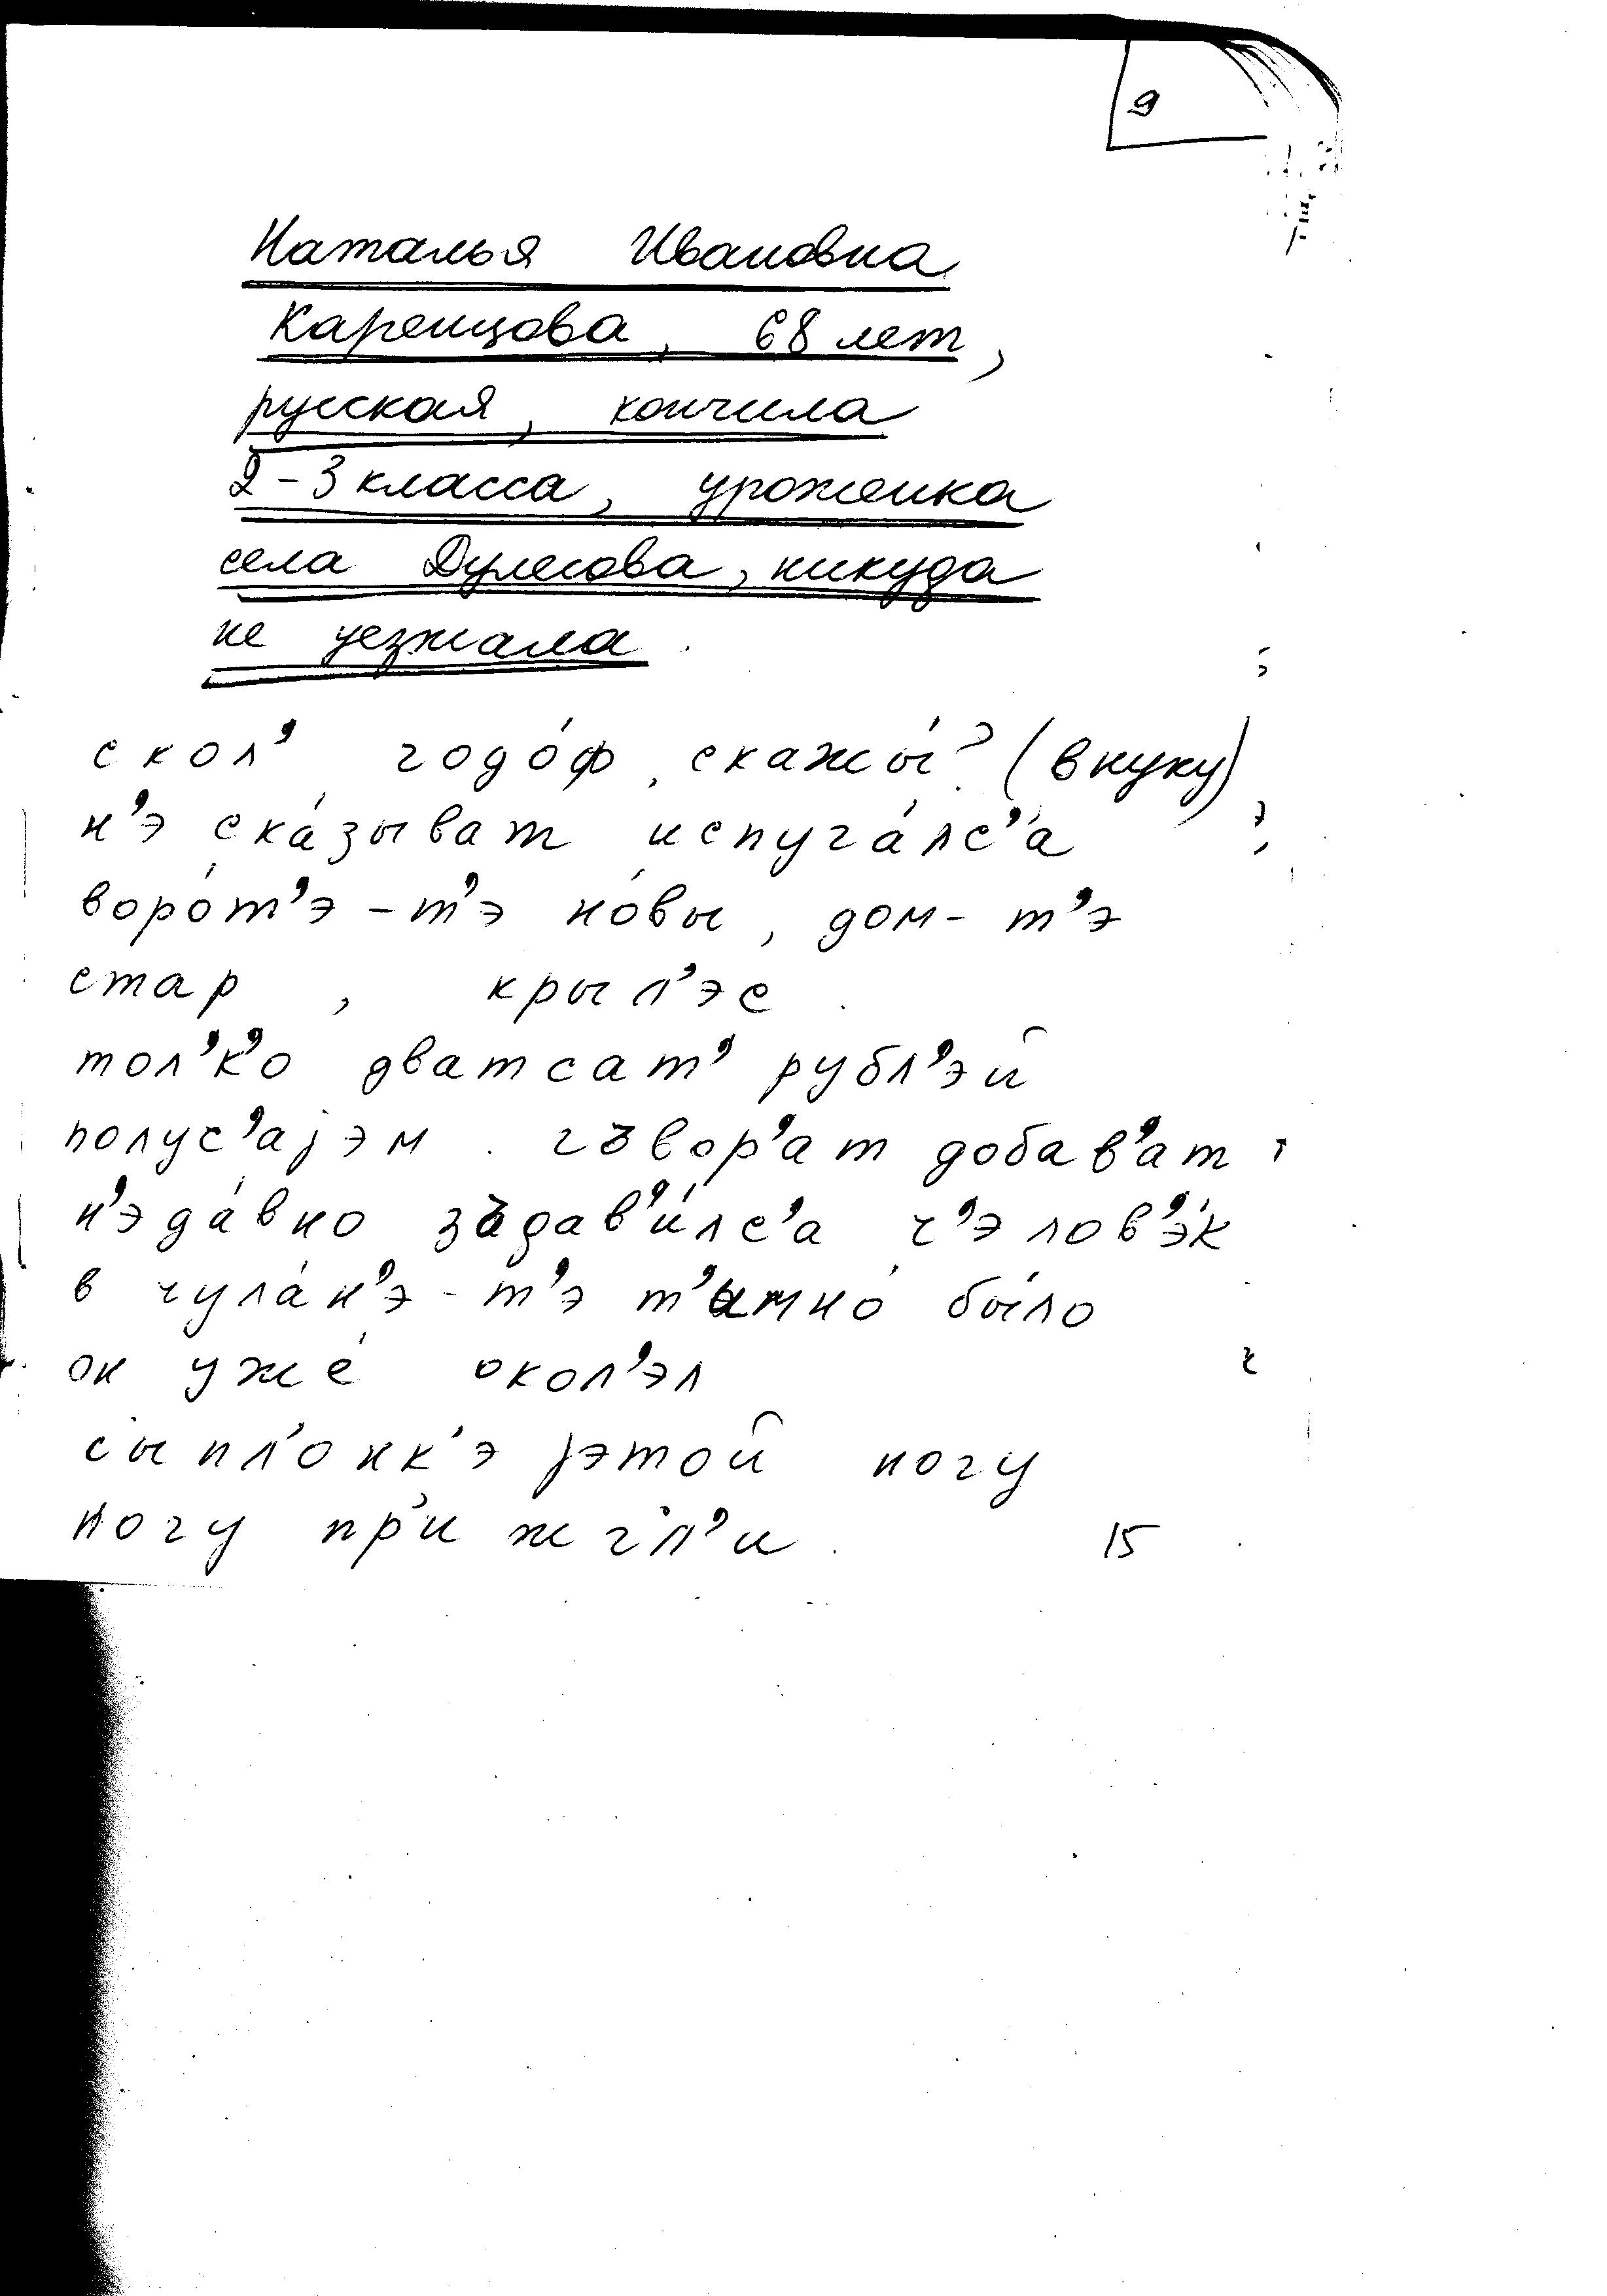 9
Наталья Ивановна
Каренцова, 68 лет,
русская, кончила
2-3 класса, уроженка
села Дулесова, никуда
не уезжала.
скол’ годо́ф, скажы́? (внуку)
н’э ска́зыват испуга́лс’а
воро́т’э-т’э но́вы, дом-т’э
стар, крыл’эс
тол’к’о дватсат’ рубл’эй
полус’аjэм. гъвор’ат добав’ат
н’эда́вно зъдав’и́лс’а ч’элов’э́к
в чула́н’э-т’э т’имно́ бы́ло
он уже́ окол’эл
сыпл’онк’э jэтой ногу
ногу пр’ижгл’и.
15